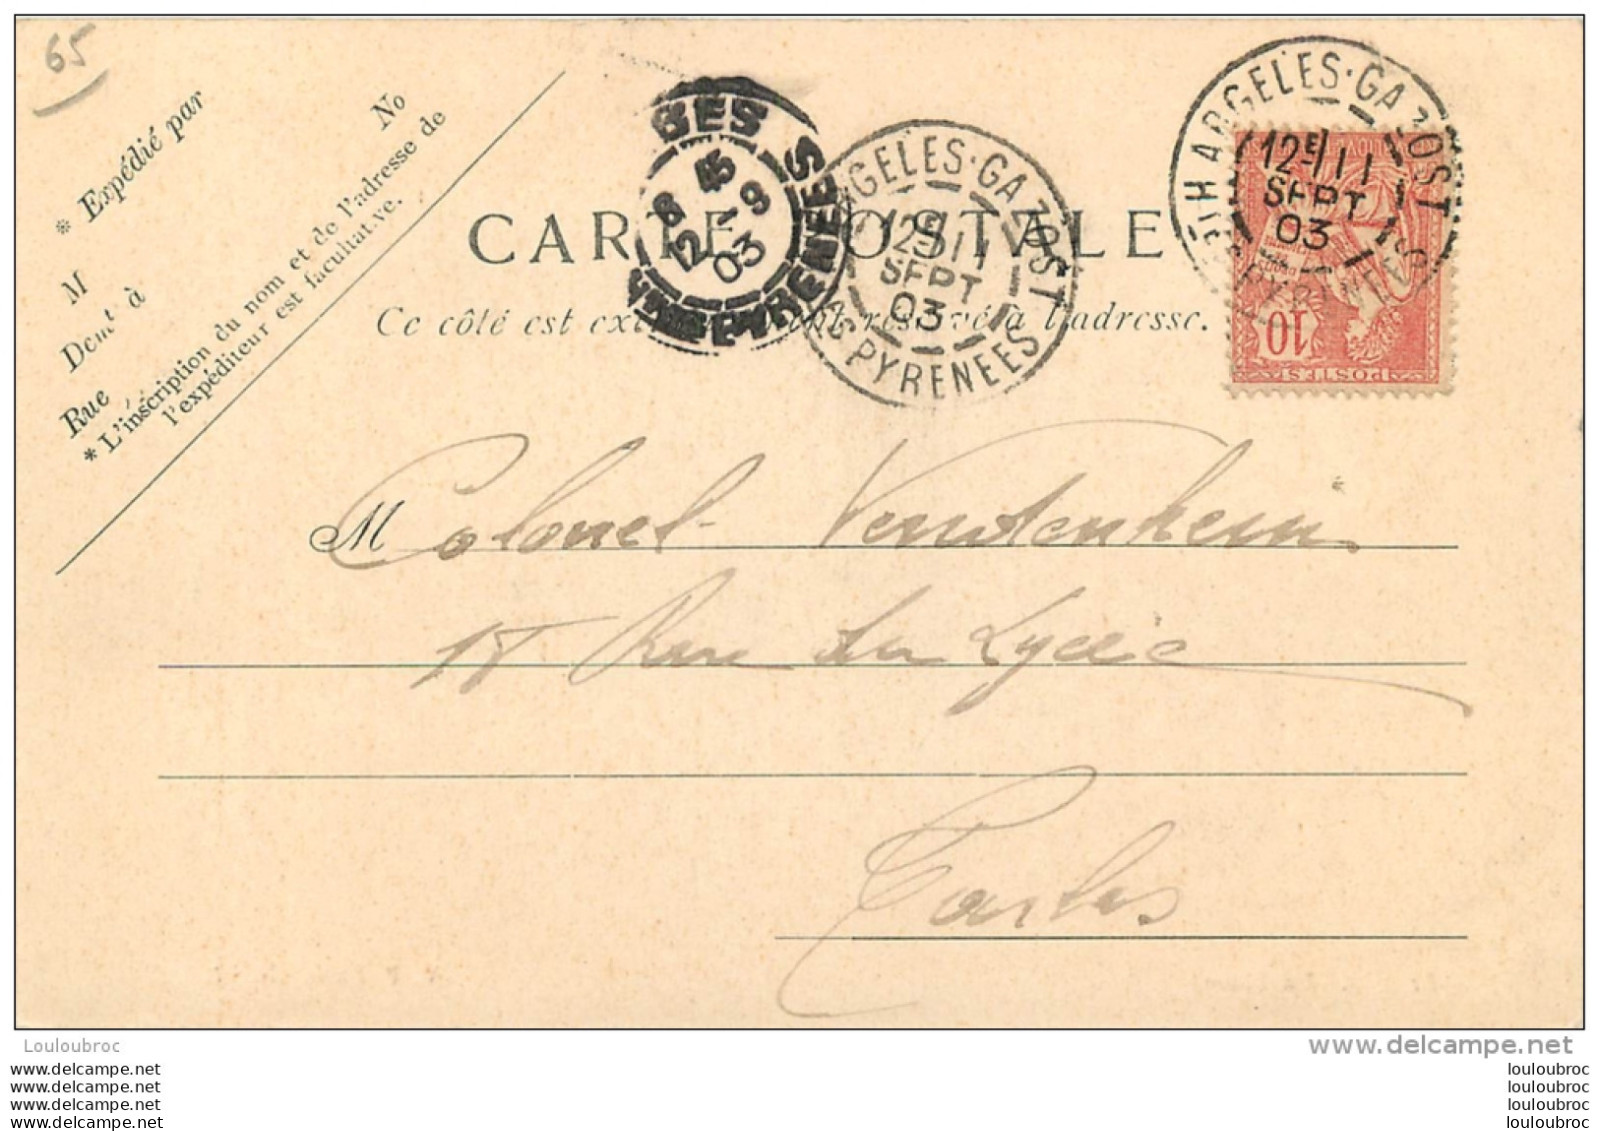 65
* Expédié par
M
Demt à
Rue
No
* L'inscription du nom et de l'adresse de
l'expéditeur est facultat.ve.
BES
8 45
12 - 9
03
PYRENEES
ARGELES-GAZOST
12E/11
SEPT
03
TES PYRENEES
H ARGELES-GAZOST
12E/11
SEPT
03
PYRENEES
10
POSTES
CARTE POSTALE
Ce côté est exclusivement réservé à l'adresse.
M Colonel
Rue du Lycée
Tarbes
Louloubroc
www.delcampe.net
www.delcampe.net
www.delcampe.net
www.delcampe.net
www.delcampe.net
louloubroc
louloubroc
louloubroc
louloubroc